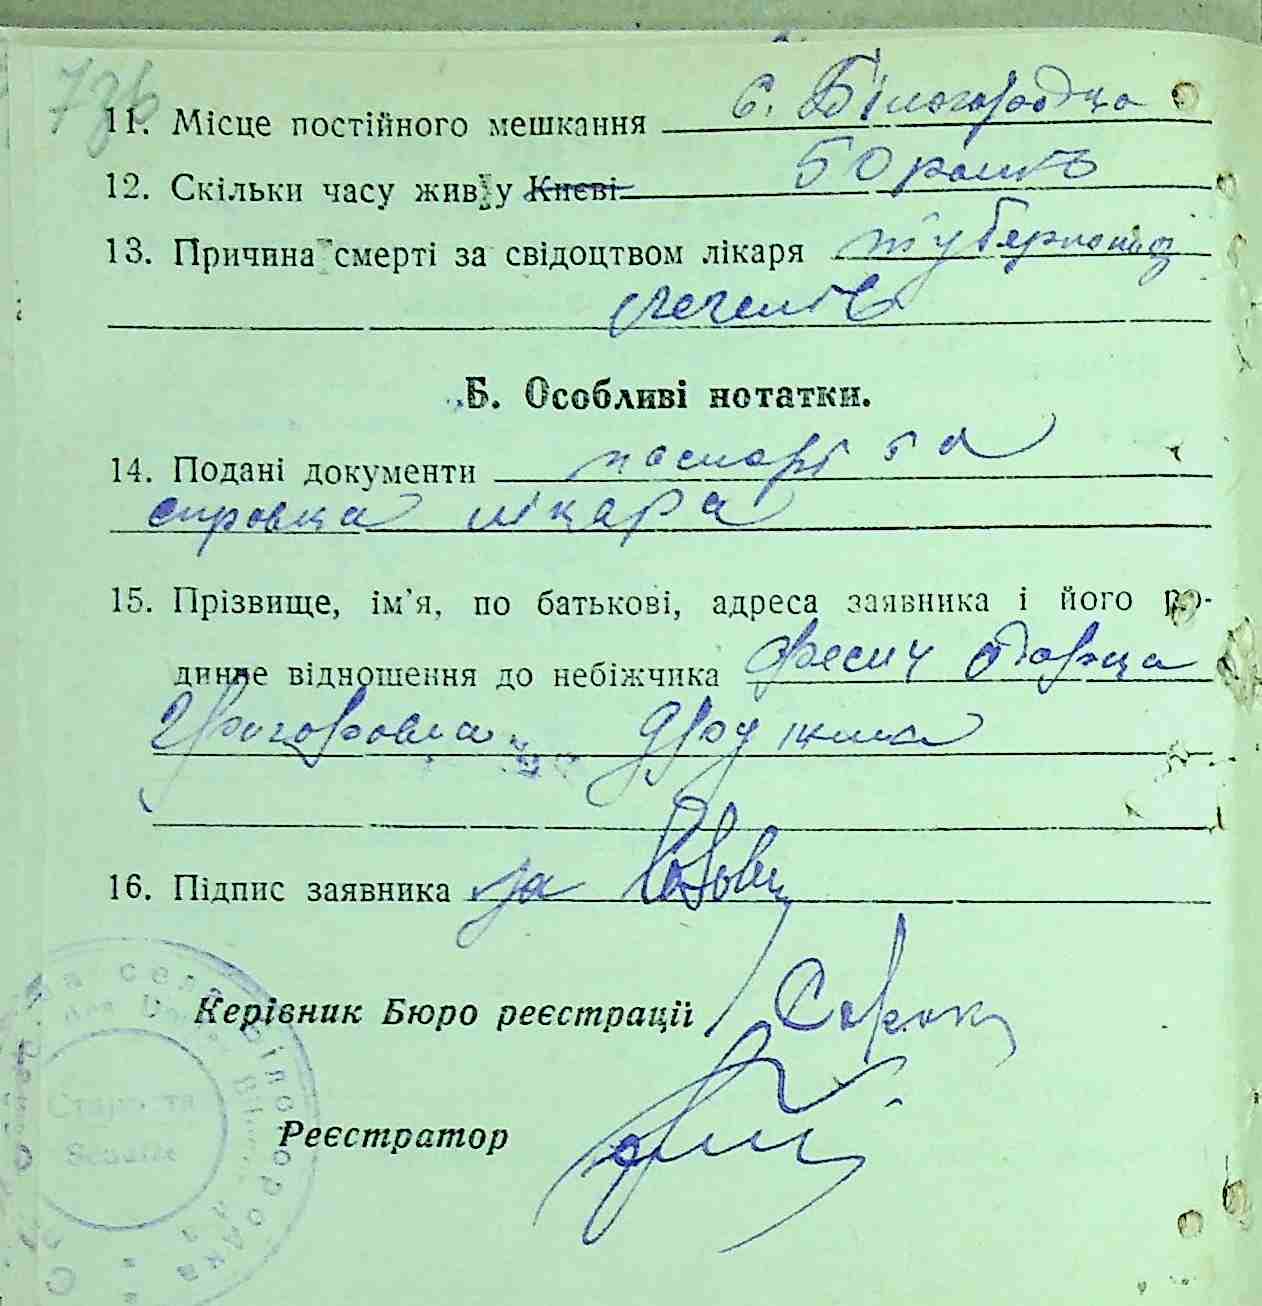 736
11. Місце постійного мешкання с. Білогородца
12. Скільки часу жив у Києві 50 років
13. Причина смерті за свідоцтвом лікаря туберкольоз
легенів
Б. Особливі нотатки.
14. Подані документи паспорт та
справка лікара
15. Прізвище, ім'я, по батькові, адреса заявника і його ро-
динне відношення до небіжчика Одарка
Григоровна дружина
16. Підпис заявника за
Керівник Бюро реєстрації Сорока
Реєстратор
Староста
села Білогородка